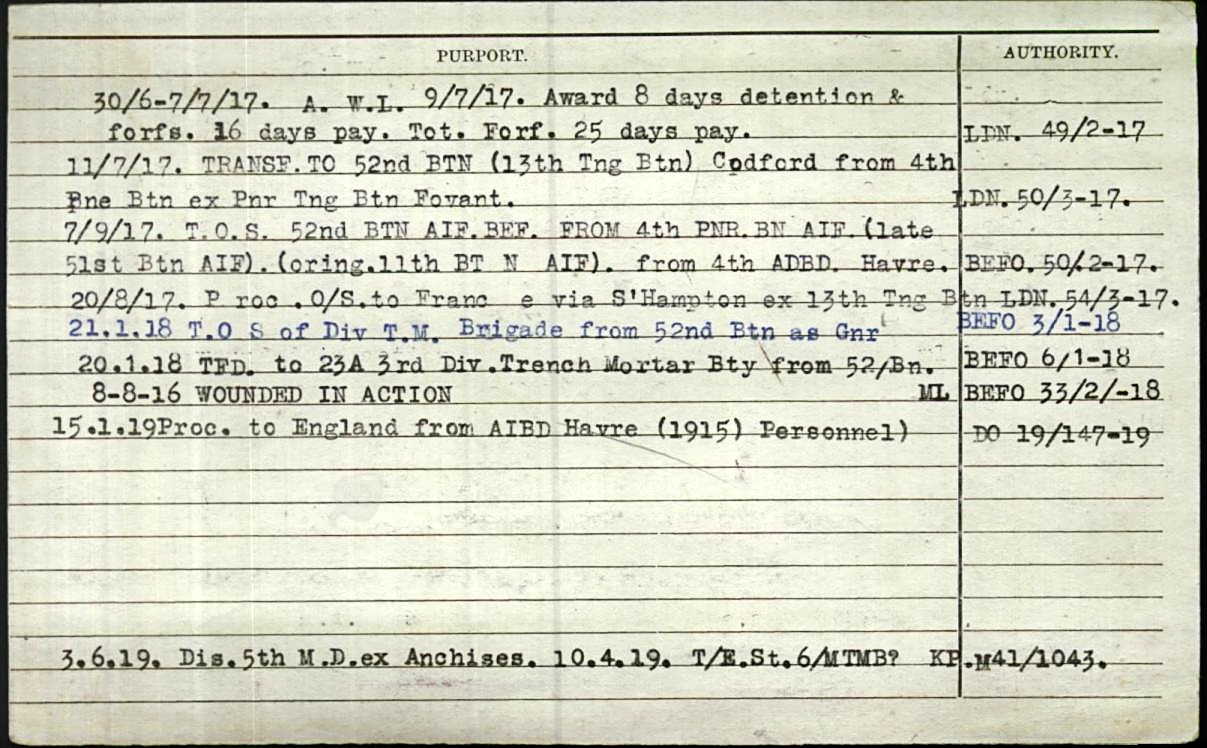 PURPORT. AUTHORITY.
30/6-7/7/17. A. W.L. 9/7/17. Award 8 days detention &
forfs. 16 days pay. Tot. Forf. 25 days pay. LDN. 49/2-17
11/7/17. TRANSF.TO 52nd BTN (13th Tng Btn) Codford from 4th
Pne Btn ex Pnr Tng Btn Fovant. LDN.50/3-17.
7/9/17. T.O.S. 52nd BTN AIF.BEF. FROM 4th PNR.BN AIF.(late
51st Btn AIF).(oring.11th BT N AIF). from 4th ADBD. Havre. BEFO.50/2-17.
20/8/17. P roc .O/S.to Franc e via S'Hampton ex 13th Tng Btn LDN.54/3-17.
21.1.18 T.O S of Div T.M. Brigade from 52nd Btn as Gnr BEFO 3/1-18
20.1.18 TFD. to 23A 3rd Div.Trench Mortar Bty from 52/Bn. BEFO 6/1-18
8-8-16 WOUNDED IN ACTION ML BEFO 33/2/-18
15.1.19Proc. to England from AIBD Havre (1915) Personnel) DO 19/147-19
3.6.19. Dis.5th M.D.ex Anchises. 10.4.19. T/E.St.6/MTMB? KP.M41/1043.